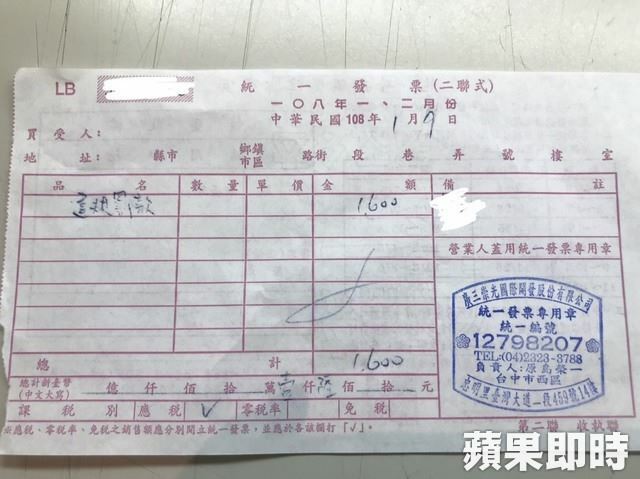 LB 統一發票(二聯式)
一〇八年一、二月份
中華民國108年1月9日
買受人:
地址: 縣市 鄉鎮市區 路街 段 巷 弄 號 樓 室
品名 數量 單價 金額 備註
違規罰款 1,600
營業人蓋用統一發票專用章
廣三崇光國際開發股份有限公司
統一發票專用章
統一編號
12798207
TEL:(04)2323-3788
負責人:原島榮一
台中市西區
忠明里臺灣大道二段459號14樓
總計 1,600
總計新臺幣(中文大寫) 億 仟 佰 拾 萬 壹 仟 陸 佰 拾 元
課稅別 應稅 ✓ 零稅率 免稅
※應稅、零稅率、免稅之銷售額應分別開立統一發票,並應於各該欄打「✓」。
第二聯 收執聯
蘋果即時